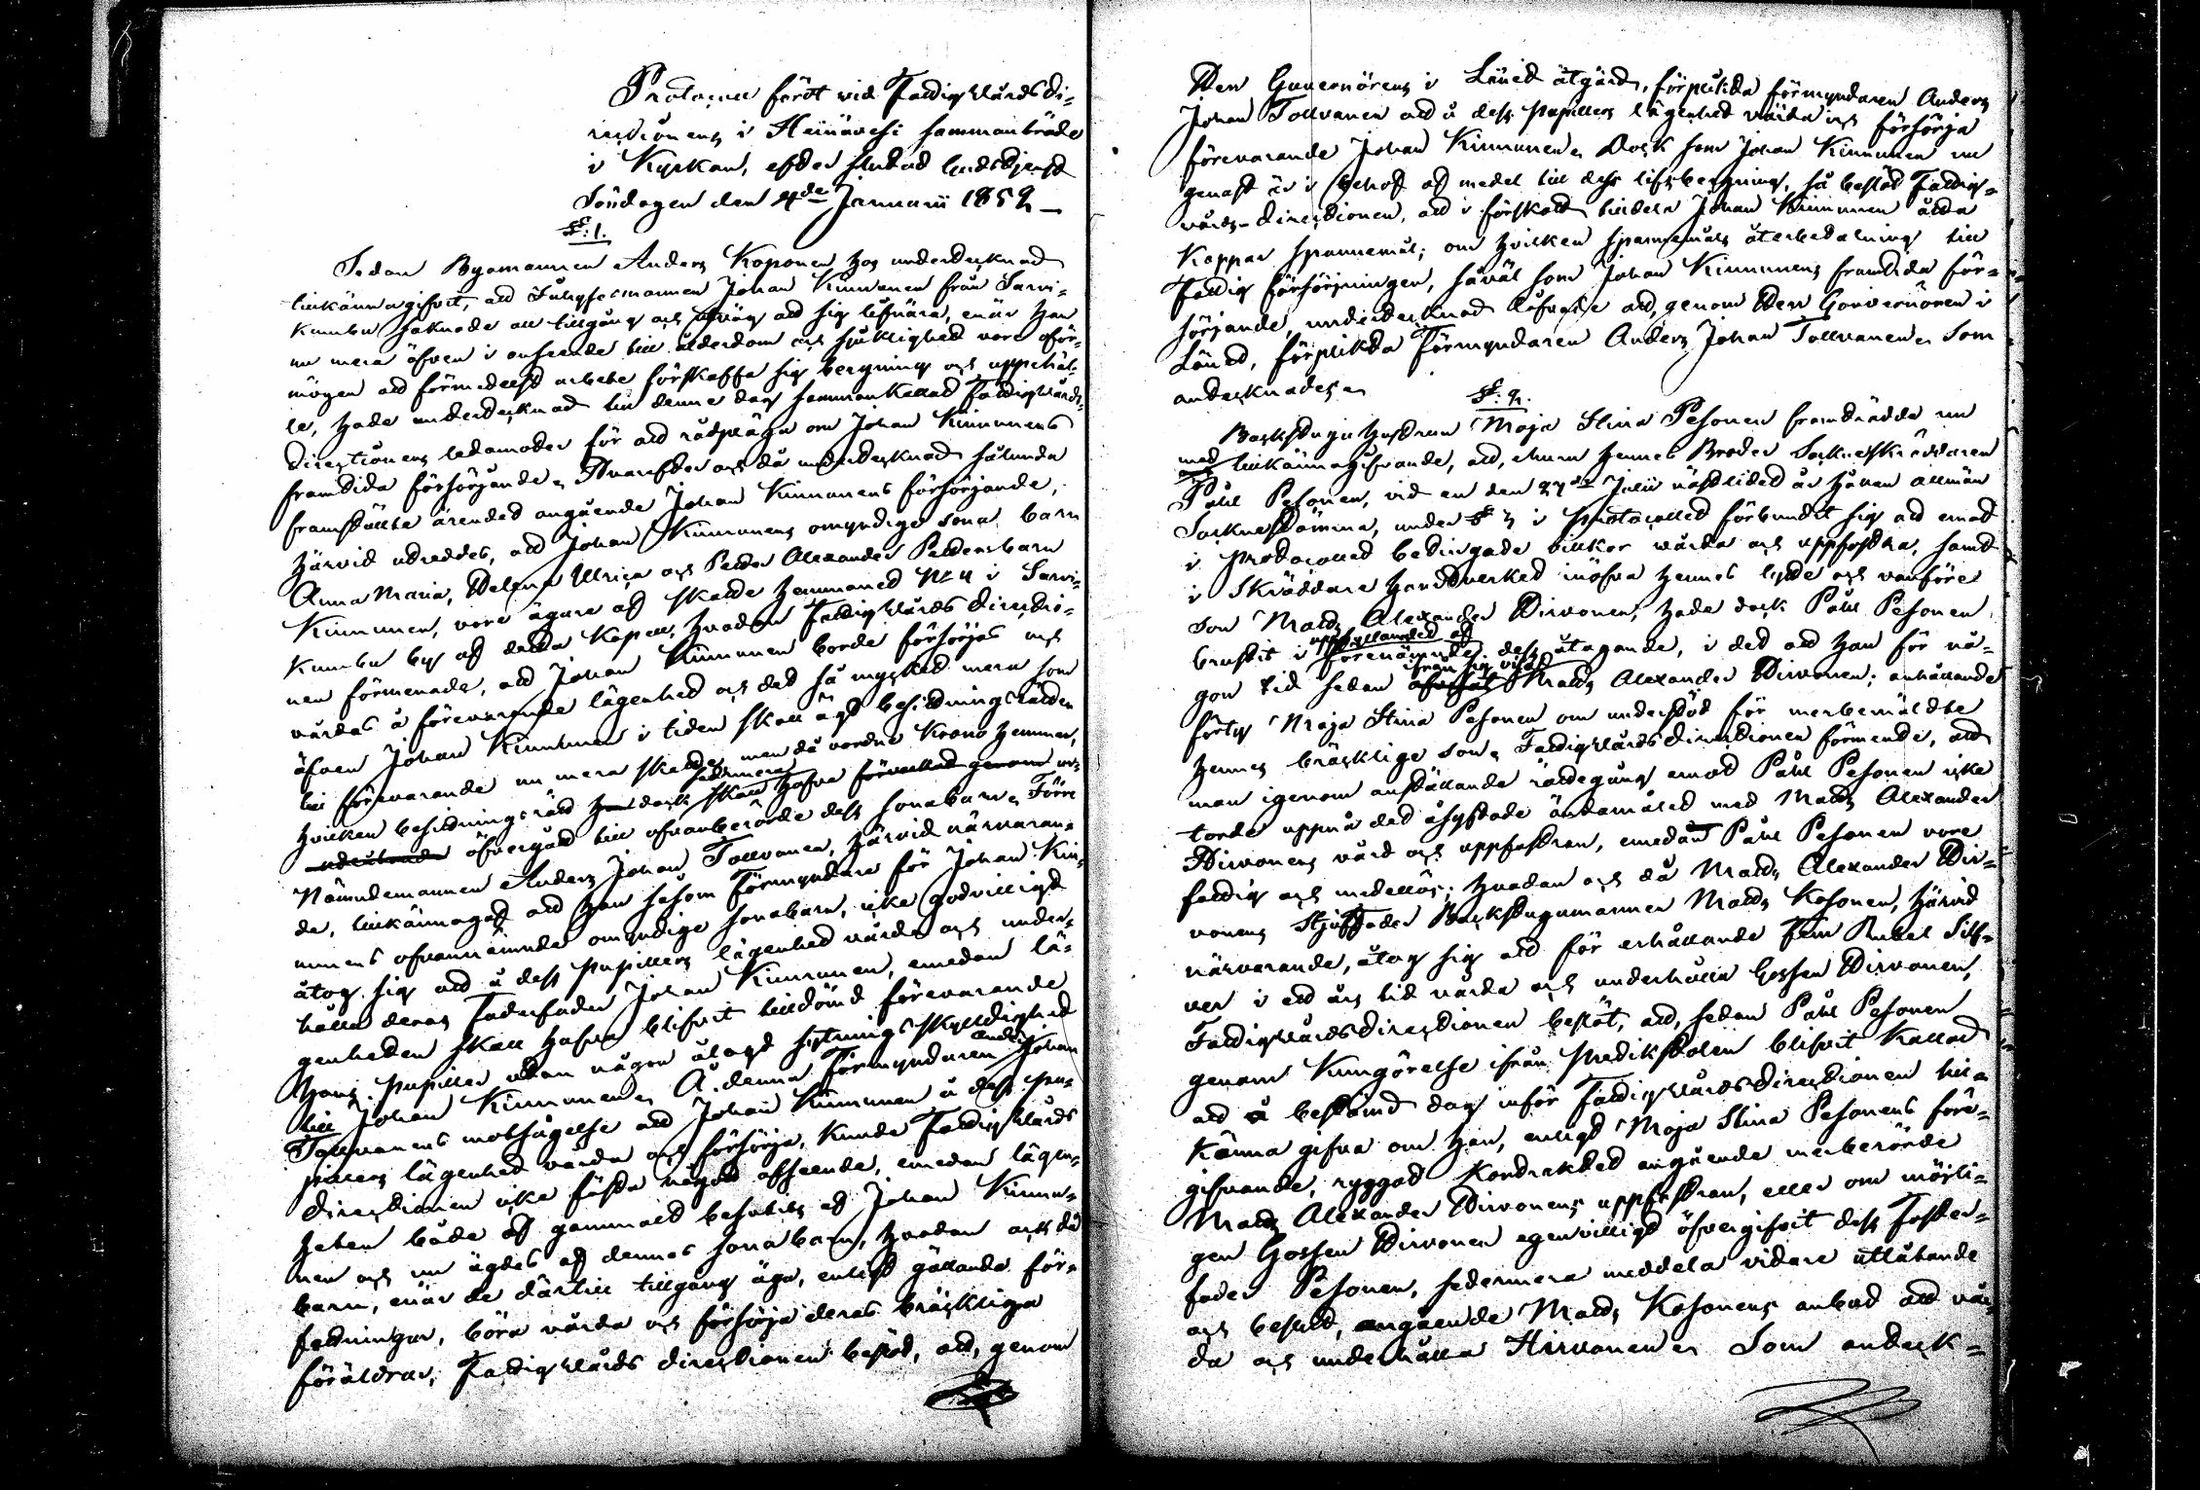 Protocoll fördt vid Fattigvårdsdi-
rectionens i Heinävesi sammanträde
i Kyrkan, efter slutad Gudstjenst
Söndagen den 4de Januarii 1852 —
§: 1.
Sedan Byamannen Anders Koponen hos undertecknad
tillkännagifvit, att Inhysesmannen Johan Kinnunen från Sarvi-
kumbu saknade all tillgång och utväg att sig lifnära, enär han
nu mera äfven i anseende till ålderdom och sjuklighet vore oför-
mögen att förmedelst arbete förskaffa sig bergning och uppehäl-
le, hade undertecknad till denne dag sammankallat Fattigvårds-
directionens ledamöter för att rådpläga om Johan Kinnunens
framtida försörjande. Hvarefter och då undertecknad sålunda
framställte ärendet angående Johan Kinnunens försörjande,
härvid utreddes, att Johan Kinnunens omyndige sona barn
Anna Maria, Helena Ulrica och Petter Alexander Pettersbarn
Kinnunen, vore ägare af skatte hemmanet No 4 i Sarvi-
kumbu by af detta Kapell, hvadan Fattigvårds Directio-
nen förmenade, att Johan Kinnunen borde försörjas och
vårdas å förevarande lägenhet och det så mycket mera som
äfven Johan Kinnunen i tiden skall ägt besittningsrätten
till förevarande nu mera skatte, men då vordne Krono hemman,
hvilken besittningsrätt dock sedermera skall hafva förvallat genom
öfvergått till ofvanberörde dess sonabarn. Förre
Nämndemannen Anders Johan Tollvanen, härvid närvaran-
de, tillkännagaf att han såsom Förmyndare för Johan Kin-
nunens ofvannämnde omyndige sonabarn, icke godvilligt
åtog sig att å dess pupillers lägenhet vårda och under-
hålla deras Faderfader Johan Kinnunen, emedan lä-
genheten skall hafva blifvit tilldömd förevarande
Hans pupiller utan någon ålagd sytnings skyldighet
till Johan Kinnunen. Å denna Förmyndaren Anders Johan
Tollvanens motsägelse att Johan Kinnunen å dess pu-
pillers lägenhet vårda och försörja, kunde Fattigvårds
Directionen icke fästa något afseende, emedan lägen-
heten både af gammalt besutits af Johan Kinnu-
nen och nu ägdes af dennes sonabarn, hvadan och då
barn, enär de därtill tillgång äga, enligt gällande för-
fattningar, böra vårda och försörja deras bräckliga
föräldrar, Fattigvårds directionen beslöt, att, genom
Herr Guvernörens i Länet åtgärd, förplikta förmyndaren Anders
Johan Tollvanen att å dess pupillers lägenhet vårda och försörja
förevarande Johan Kinnunen. Dock som Johan Kinnunen nu
genast är i behof af medel till dess lifsbergning, så beslöt Fattig-
vårds-directionen, att i förskott tilldela Johan Kinnunen åtta
Kappar spannemål; om hvilken spannemåls återbetalning till
Fattig försörjningen, såväl som Johan Kinnunens framtida för-
sörjande, undertecknad äfven att, genom Herr Gouvernören i
Länet, förplikta Förmyndaren Anders Johan Tollvanen. Som
antecknades.
§: 2.
Backstugu hustrun Maja Stina Pesonen framträdde nu
med tillkännagifvande, att, ehuru hennes Broder Sockneskräddaren
Påhl Pesonen, vid en den 27de Julii nästlidet år hållen allmän
Sockne stämma, under § 3 i protocollet förbundit sig att emot
i protocollet betingade villkor vårda och uppfostra, samt
i Skräddare handtverket inöfva hennes lytte och vanföre
son Matts Alexander Hirvonen, hade dock Påhl Pesonen
brustit i uppfyllandet af förenämnde dess åtagande, i det att han för nå-
gon tid sedan ifrån sig vist Matts Alexander Hirvonen; anhållande
förty Maja Stina Pesonen om understöd för merbemäldte
hennes bräcklige son. Fattigvårds directionen förmente, att
man igenom anställande rättegång emot Påhl Pesonen icke
torde uppnå det åsyftade ändamålet med Matts Alexander
Hirvonens vård och uppfostran, emedan Påhl Pesonen vore
fattig och medellös; hvadan och då Matts Alexander Hir-
vonens Stjuffader Backstugumannen Matts Kosonen, härvid
närvarande, åtog sig att för erhållande fem Rubel Silf-
ver i ett års tid vårda och underhålla Gossen Hirvonen,
Fattigvårdsdirectionen beslöt, att, sedan Påhl Pesonen
genom Kungörelse ifrån Predikstolen blifvit kallad
att å bestämd dag inför Fattigvårdsdirectionen till-
känna gifva om han, enligt Maja Stina Pesonens före-
gifvande, ryggat Kontraktet angående merberörde
Matts Alexander Hirvonens uppfostran, eller om möjli-
gen Gossen Hirvonen egenvilligt öfvergifvit dess Foster-
fader Pesonen, sedermera meddela vidare utlåtande
och beslut, angående Matts Kosonens anbud att vår-
da och underhålla Hirvonen. Som anteck-